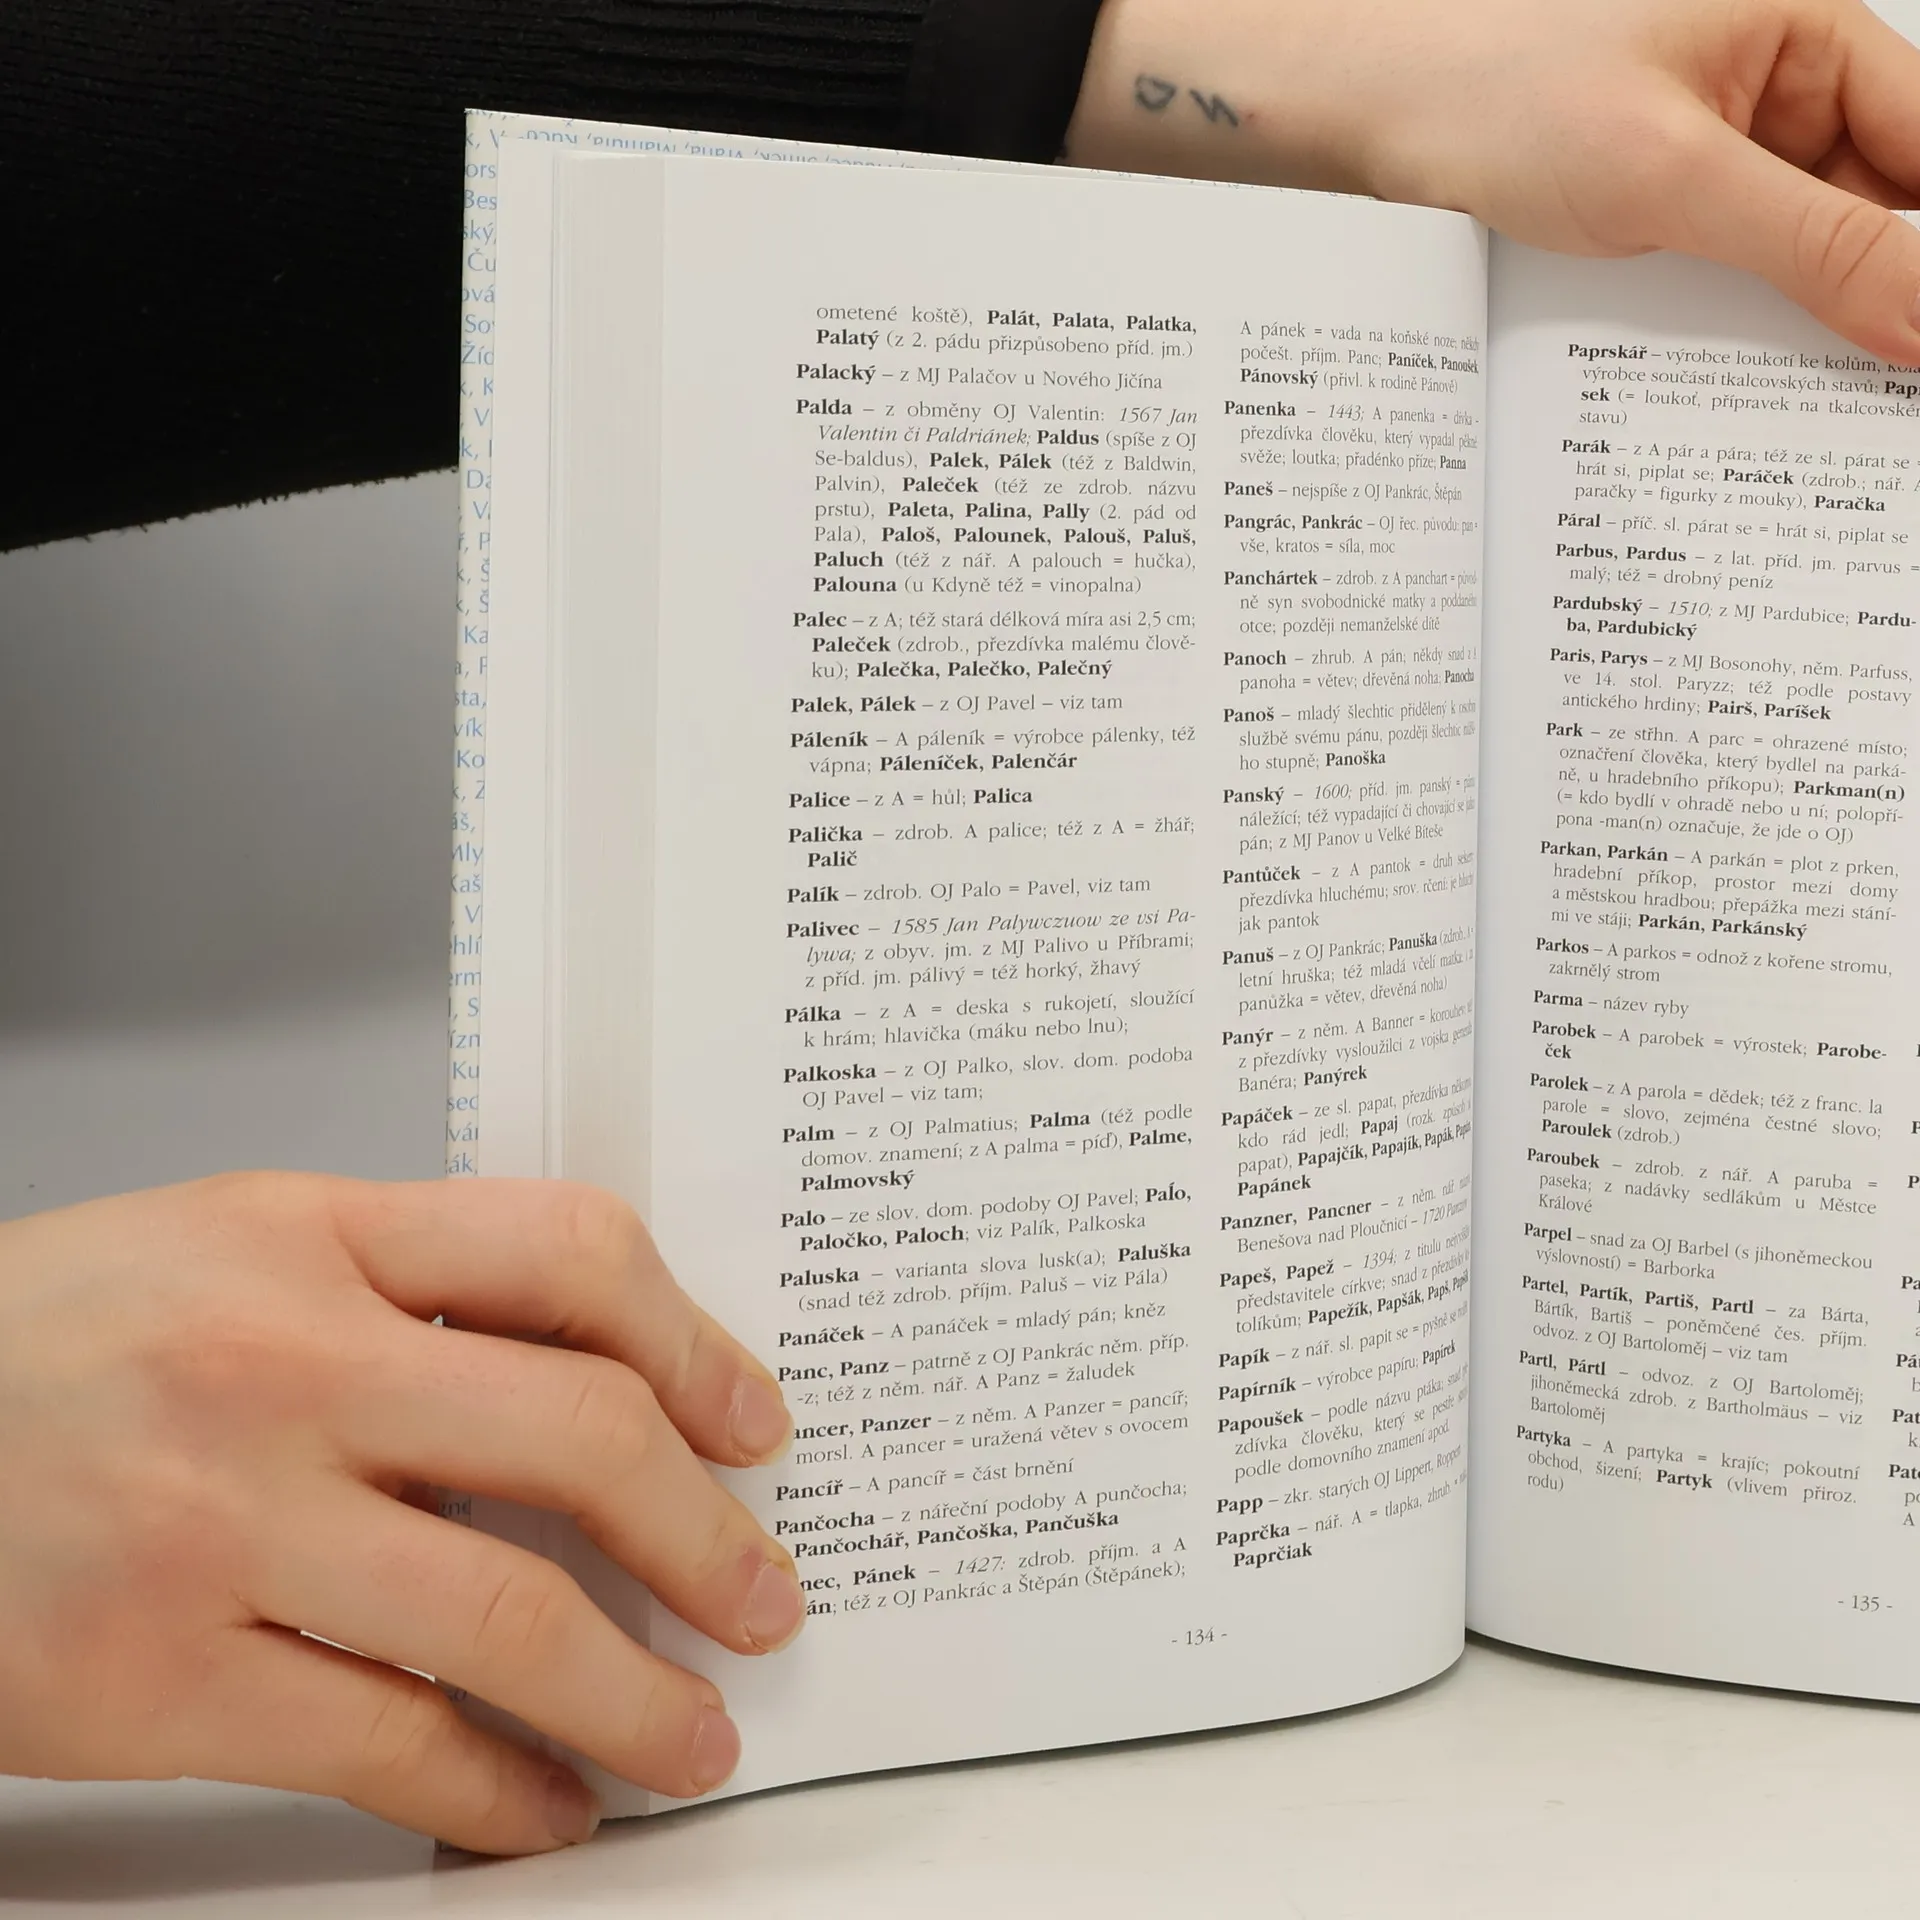 ometené koště), Palát, Palata, Palatka,
Palatý (z 2. pádu přizpůsobeno příd. jm.)
Palacký – z MJ Palačov u Nového Jičína
Palda – z obměny OJ Valentin: 1567 Jan
Valentin či Paldriánek; Paldus (spíše z OJ
Se-baldus), Palek, Pálek (též z Baldwin,
Palvin), Paleček (též ze zdrob. názvu
prstu), Paleta, Palina, Pally (2. pád od
Pala), Paloš, Palounek, Palouš, Paluš,
Paluch (též z nář. A palouch = hučka),
Palouna (u Kdyně též = vinopalna)
Palec – z A; též stará délková míra asi 2,5 cm;
Paleček (zdrob., přezdívka malému člově-
ku); Palečka, Palečko, Palečný
Palek, Pálek – z OJ Pavel – viz tam
Páleník – A páleník = výrobce pálenky, též
vápna; Páleníček, Palenčár
Palice – z A = hůl; Palica
Palička – zdrob. A palice; též z A = žhář;
Palič
Palík – zdrob. OJ Palo = Pavel, viz tam
Palivec – 1585 Jan Palywczuow ze vsi Pa-
lywa; z obyv. jm. z MJ Palivo u Příbrami;
z příd. jm. pálivý = též horký, žhavý
Pálka – z A = deska s rukojetí, sloužící
k hrám; hlavička (máku nebo lnu);
Palkoska – z OJ Palko, slov. dom. podoba
OJ Pavel – viz tam;
Palm – z OJ Palmatius; Palma (též podle
domov. znamení; z A palma = píď), Palme,
Palmovský
Palo – ze slov. dom. podoby OJ Pavel; Paĺo,
Paločko, Paloch; viz Palík, Palkoska
Paluska – varianta slova lusk(a); Paluška
(snad též zdrob. příjm. Paluš – viz Pála)
Panáček – A panáček = mladý pán; kněz
Panc, Panz – patrně z OJ Pankrác něm. příp.
-z; též z něm. nář. A Panz = žaludek
ancer, Panzer – z něm. A Panzer = pancíř;
morsl. A pancer = uražená větev s ovocem
Pancíř – A pancíř = část brnění
Pančocha – z nářeční podoby A punčocha;
Pančochář, Pančoška, Pančuška
nec, Pánek – 1427: zdrob. příjm. a A
án; též z OJ Pankrác a Štěpán (Štěpánek);
A pánek = vada na koňské noze; někdy
počešt. příjm. Panc; Paníček, Panoušek
Pánovský (přivl. k rodině Pánově)
Panenka – 1443; A panenka = dívka -
přezdívka člověku, který vypadal pěkně
svěže; loutka; přadénko příze; Panna
Paneš – nejspíše z OJ Pankrác, Štěpán
Pangrác, Pankrác – OJ řec. původu: pan =
vše, kratos = síla, moc
Panchártek – zdrob. z A panchart = původ-
ně syn svobodnické matky a poddaného
otce; později nemanželské dítě
Panoch – zhrub. A pán; někdy snad z
panoha = větev; dřevěná noha; Panocha
Panoš – mladý šlechtic přidělený k osobní
službě svému pánu, později šlechtic niž-
ho stupně; Panoška
Panský – 1600; příd. jm. panský = pánu
náležící; též vypadající či chovající se jako
pán; z MJ Panov u Velké Bíteše
Pantůček – z A pantok = druh sekery
přezdívka hluchému; srov. rčení: je hluchý
jak pantok
Panuš – z OJ Pankrác; Panuška (zdrob.
letní hruška; též mladá včelí matka;
panůžka = větev, dřevěná noha)
Panýr – z něm. A Banner = korouhev,
z přezdívky vysloužilci z vojska generála
Banéra; Panýrek
Papáček – ze sl. papat, přezdívka někomu,
kdo rád jedl; Papaj (rozk. způsob
papat), Papajčík, Papajík, Papák,
Papánek
Panzner, Pancner – z něm. nář.
Benešova nad Ploučnicí – 1720
Papeš, Papež – 1394; z titulu nejvyššího
představitele církve; snad z přezdívky
tolíkům; Papežík, Papšák, Papš,
Papík – z nář. sl. papit se = pyšně se
Papírník – výrobce papíru; Papírek
Papoušek – podle názvu ptáka; snad
zdívka člověku, který se pestře
podle domovního znamení apod.
Papp – zkr. starých OJ Lippert, Roppert
Paprčka – nář. A = tlapka, zhrub. =
Paprčiak
- 134 -
Paprskář – výrobce loukotí ke kolům,
výrobce součástí tkalcovských stavů; Papr
sek (= loukoť, přípravek na tkalcovském
stavu)
Parák – z A pár a pára; též ze sl. párat se =
hrát si, piplat se; Paráček (zdrob.; nář. A
paračky = figurky z mouky), Paračka
Páral – příč. sl. párat se = hrát si, piplat se
Parbus, Pardus – z lat. příd. jm. parvus =
malý; též = drobný peníz
Pardubský – 1510; z MJ Pardubice; Pardu-
ba, Pardubický
Paris, Parys – z MJ Bosonohy, něm. Parfuss,
ve 14. stol. Paryzz; též podle postavy
antického hrdiny; Pairš, Paríšek
Park – ze střhn. A parc = ohrazené místo;
označření člověka, který bydlel na parká-
ně, u hradebního příkopu); Parkman(n)
(= kdo bydlí v ohradě nebo u ní; polopří-
pona -man(n) označuje, že jde o OJ)
Parkan, Parkán – A parkán = plot z prken,
hradební příkop, prostor mezi domy
a městskou hradbou; přepážka mezi stání-
mi ve stáji; Parkán, Parkánský
Parkos – A parkos = odnož z kořene stromu,
zakrnělý strom
Parma – název ryby
Parobek – A parobek = výrostek; Parobe-
ček
Parolek – z A parola = dědek; též z franc. la
parole = slovo, zejména čestné slovo;
Paroulek (zdrob.)
Paroubek – zdrob. z nář. A paruba =
paseka; z nadávky sedlákům u Městce
Králové
Parpel – snad za OJ Barbel (s jihoněmeckou
výslovností) = Barborka
Partel, Partík, Partiš, Partl – za Bárta,
Bártík, Bartiš – poněmčené čes. příjm.
odvoz. z OJ Bartoloměj – viz tam
Partl, Pártl – odvoz. z OJ Bartoloměj;
jihoněmecká zdrob. z Bartholmäus – viz
Bartoloměj
Partyka – A partyka = krajíc; pokoutní
obchod, šizení; Partyk (vlivem přiroz.
rodu)
- 135 -